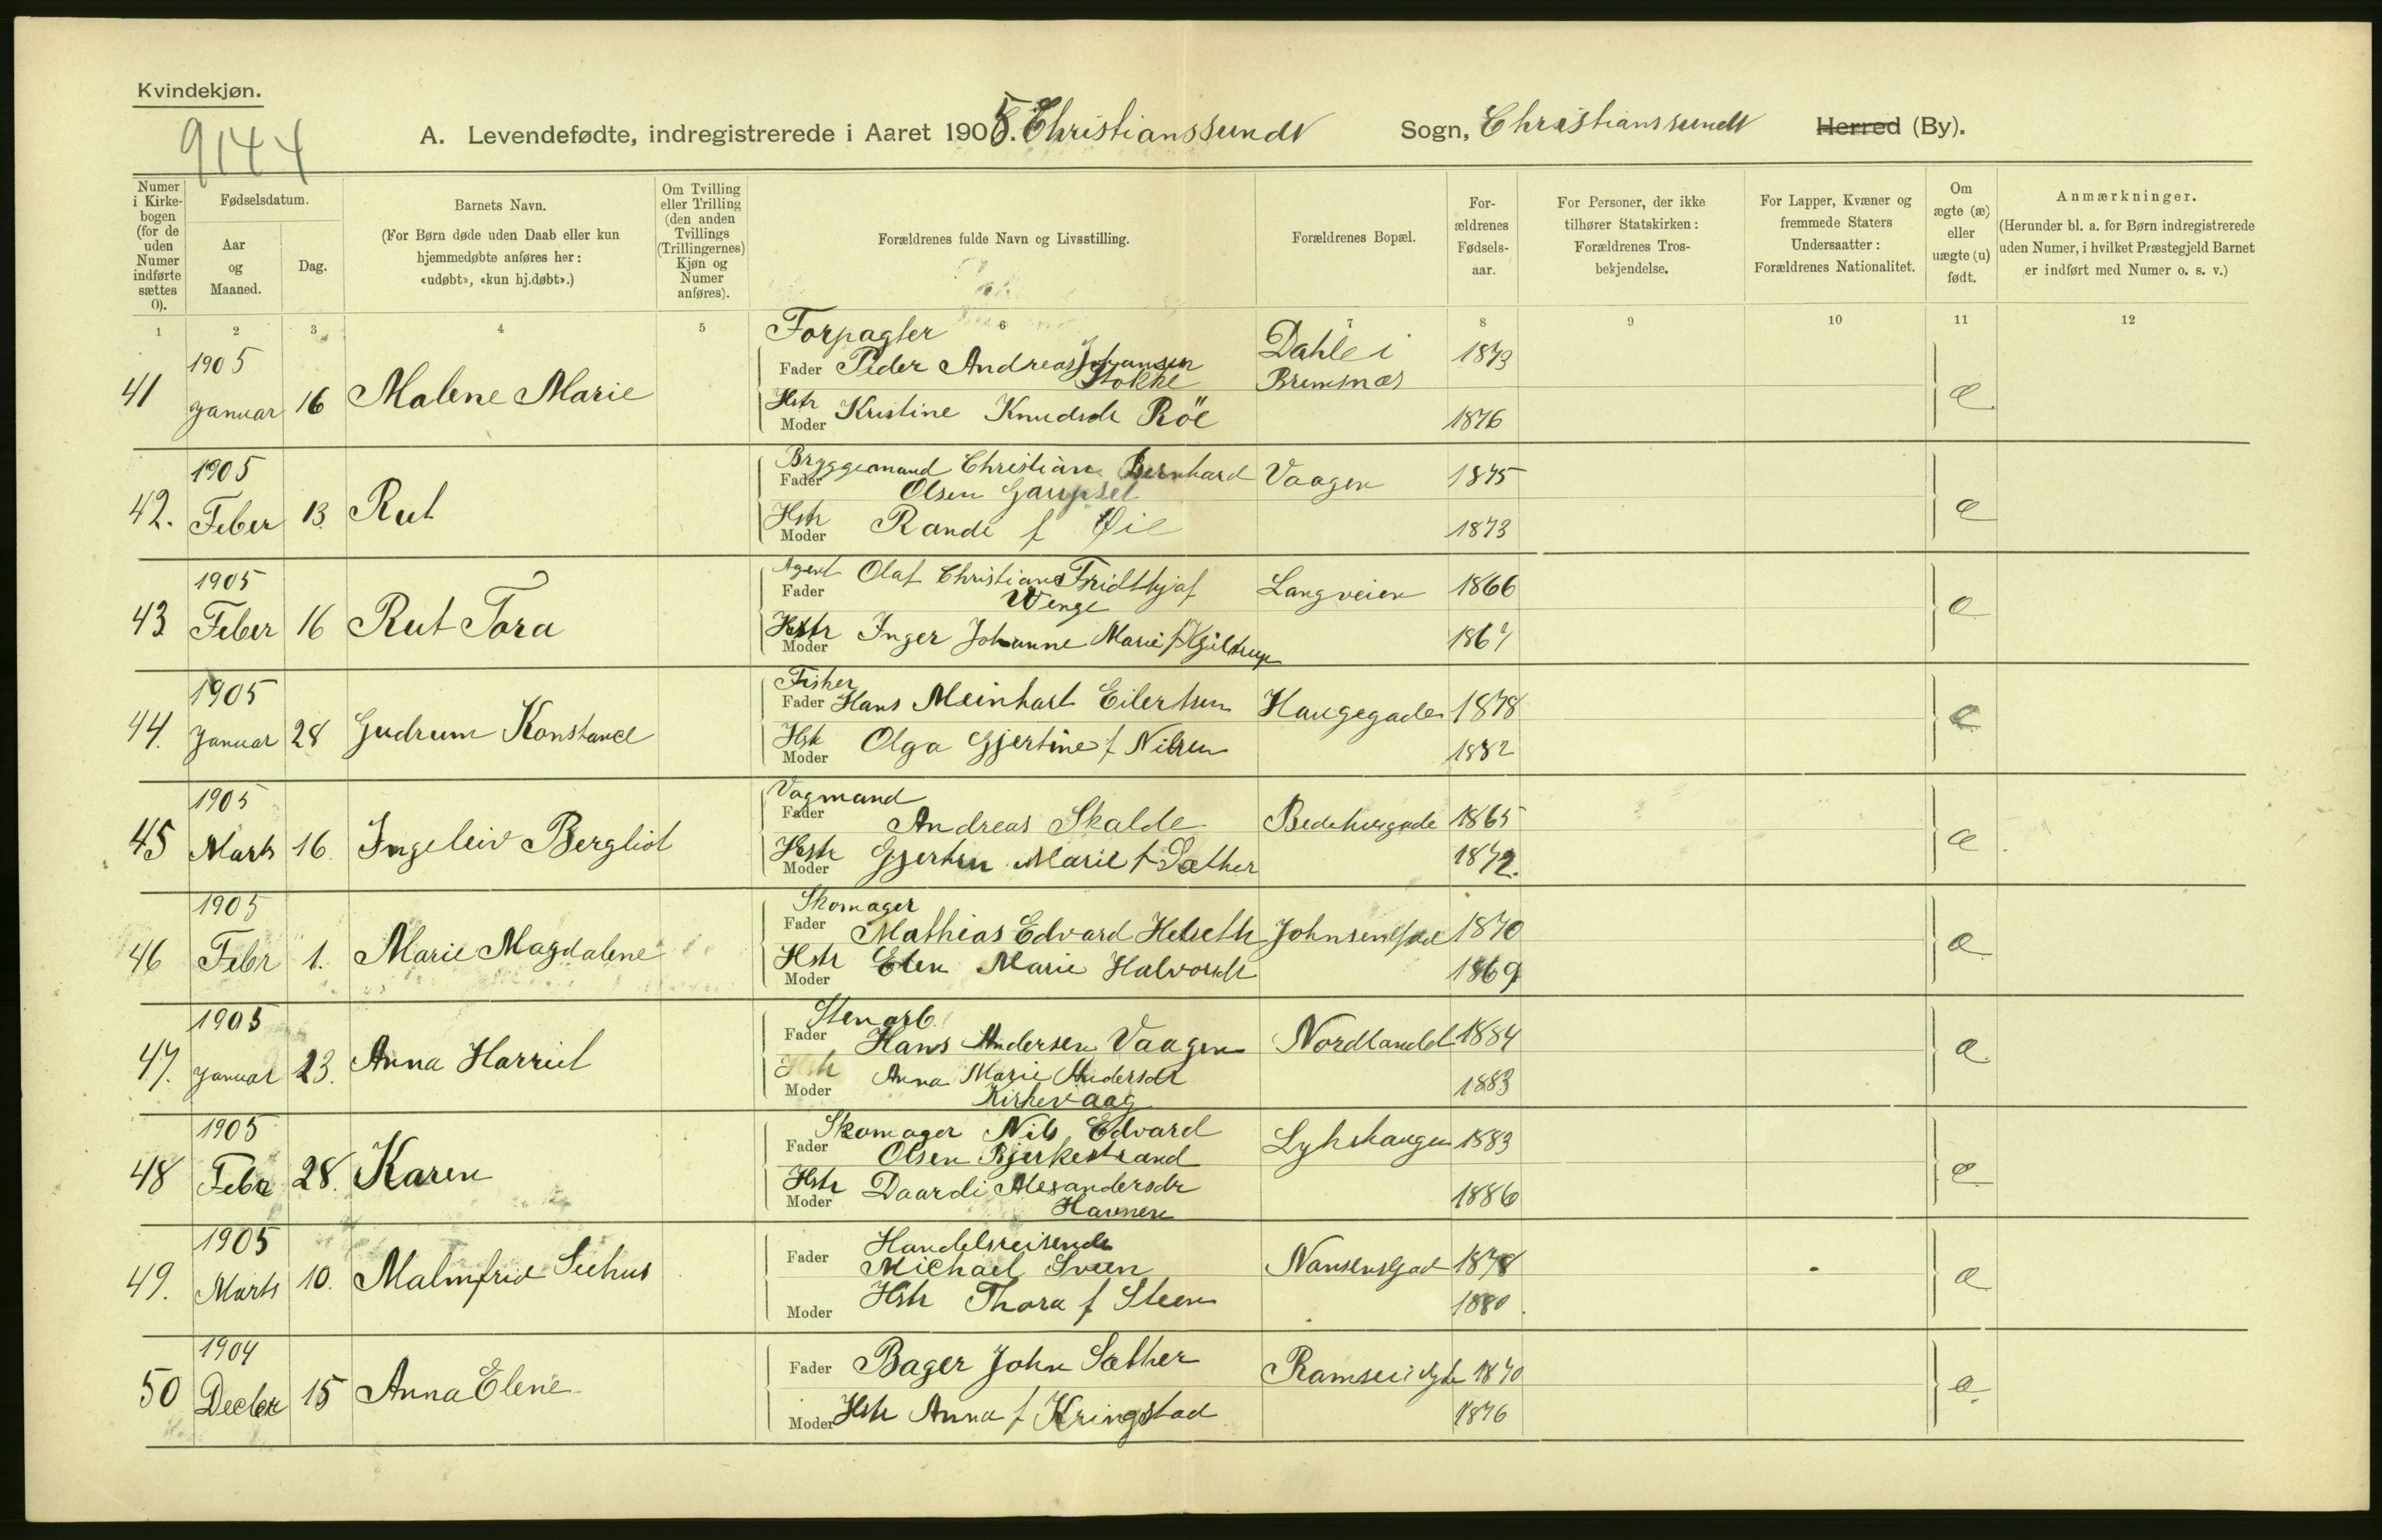 Kvindekjøn.
9144
A. Levendefødte, indregistrerede i Aaret 1905. Christianssunds Sogn, Christianssunds Herred (By).
Numer i Kirke-bogen (for de uden Numer indførte sættes 0).
Fødselsdatum.
Aar og Maaned.
Dag.
Barnets Navn.
(For Børn døde uden Daab eller kun hjemmedøbte anføres her: «udøbt», «kun hj.døbt».)
Om Tvilling eller Trilling (den anden Tvillings (Trillingernes) Kjøn og Numer anføres).
Forældrenes fulde Navn og Livsstilling.
Forældrenes Bopæl.
For-ældrenes Fødsels-aar.
For Personer, der ikke tilhører Statskirken: Forældrenes Tros-bekjendelse.
For Lapper, Kvæner og fremmede Staters Undersaatter: Forældrenes Nationalitet.
Om ægte (æ) eller uægte (u) født.
Anmærkninger.
(Herunder bl. a. for Børn indregistrerede uden Numer, i hvilket Præstegjeld Barnet er indført med Numer o. s. v.)
1 2 3 4 5 6 7 8 9 10 11 12
1905
41 Januar 16 Malene Marie
Forpagter
Fader Peder Andreas Johansen Stokke
Dahle i Bremsnæs 1873
Hstr Moder Kristine Knudsdr Röe 1876
æ
1905
42. Feber 13. Rut
Bryggemand Christian Bernhard
Fader Olsen Gaupset
Vaagen 1875
Hstr Moder Randi f Øie 1873
æ
1905
43 Feber 16 Rut Tora
Agent Olaf Christian Fridthjof
Fader Wenge
Langveien 1866
Hstr Moder Inger Johanne Marie f 1867
æ
1905
44. Januar 28 Gudrun Konstance
Fisker
Fader Hans Meinhart Eilertsen
Haugegaden 1878
Hstr Moder Olga Gjertine f Nilsen 1882
æ
1905
45 Marts 16. Ingeleiv Bergliot
Vagmand
Fader Andreas Skalde
1865
Hstr Moder Gjertru Marie f Sæther 1872.
æ
1905
46 Febr 1. Marie Magdalene
Skomager
Fader Mathias Edvard Helseth
1870
Hstr Moder Elen Marie Halvorsdr 1869
æ
1905
47. Januar 23. Anna Harriet
Stenarb.
Fader Hans Andersen Vaagen
Nordlandet 1884
Hstr Moder Anna Marie Andersdr
Kirkevaag
1883
æ
1905
48 Febr 28. Karen
Skomager Nils Edvard
Fader Olsen Bjerkestrand
1883
Hstr Moder Daardi Alexandersdr
Havnen
1886
æ
1905
49. Marts 10. Malmfrid Seehus
Handelsreisende
Fader Michael Sveen
Nansensgad 1878
Moder Hstr Thora f Steen 1880.
æ
1904
50 Decbr 15 Anna Elene
Fader Bager John Sæther
1870
Moder Hstr Anna f Kringstad 1876
æ